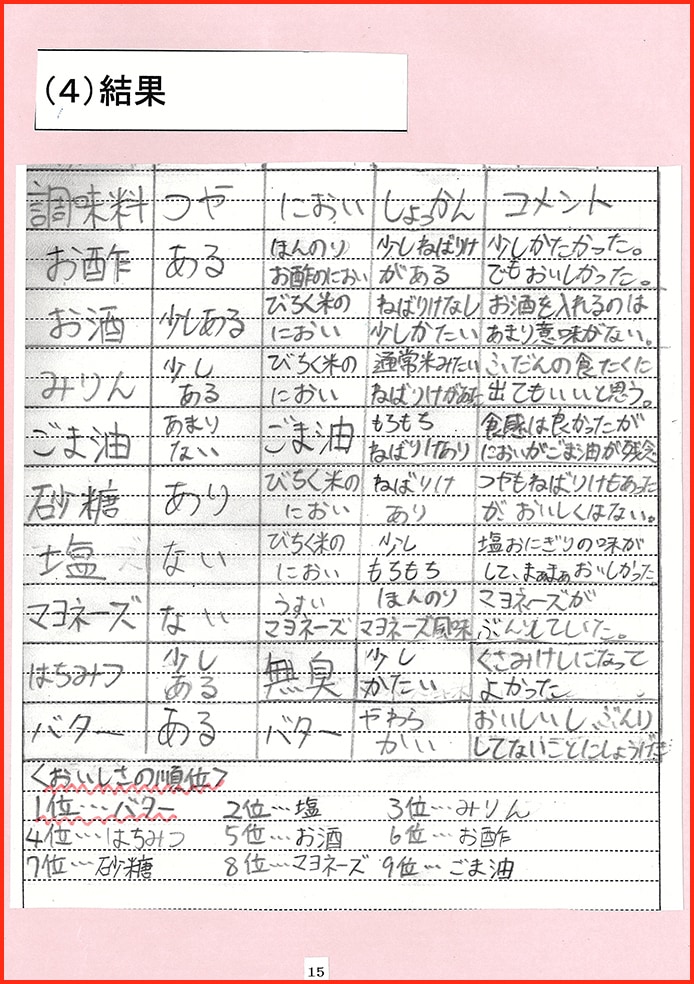 (4)結果
調味料 つや におい しょっかん コメント
お酢 ある ほんのり 少しねばりけ 少しかたかった。
お酢のにおい がある でもおいしかった。
お酒 少しある びちく米の ねばりけなし お酒を入れるのは
におい 少しかたい あまり意味がない。
みりん 少し びちく米の 通常米みたい ふだんの食たくに
ある におい ねばりけがあた 出てもいいと思う。
ごま油 あまり ごま油 もちもち 食感は良かったが
ない ねばりけあり においがごま油が残念
砂糖 あり びちく米の ねばりけ つやもねばりけもあった
におい あり が おいしくはない。
塩 ない びちく米の 少し 塩おにぎりの味が
におい もちもち して、まぁまぁおいしかった
マヨネーズ ない うすい ほんのり マヨネーズが
マヨネーズ マヨネーズ風味 ぶんりしていた。
はちみつ 少し 無臭 少し くさみけしになって
ある かたい よかった
バター ある バター やわら おいしいし、ぶんり
かい してないことにしょうげき
<おいしさの順位>
1位…バター 2位…塩 3位…みりん
4位…はちみつ 5位…お酒 6位…お酢
7位…砂糖 8位…マヨネーズ 9位…ごま油
15